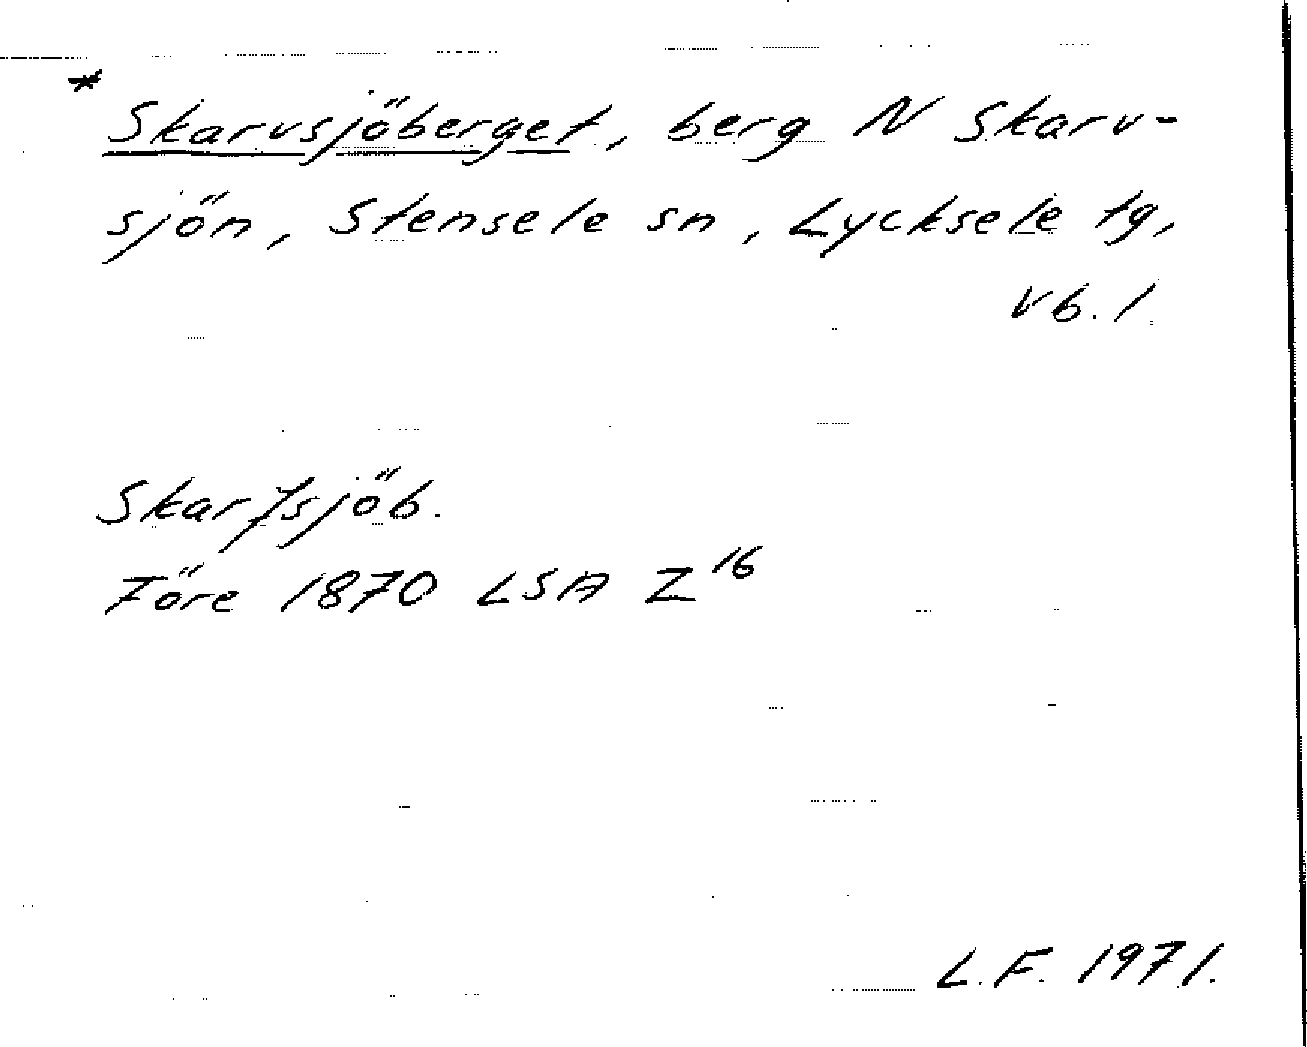 * Skarvsjöberget, berg N Skarv-
sjön, Stensele sn, Lycksele tg,
vb. l.
Skarfsjöb.
Före 1870 LSA Z16
L.F. 1971.